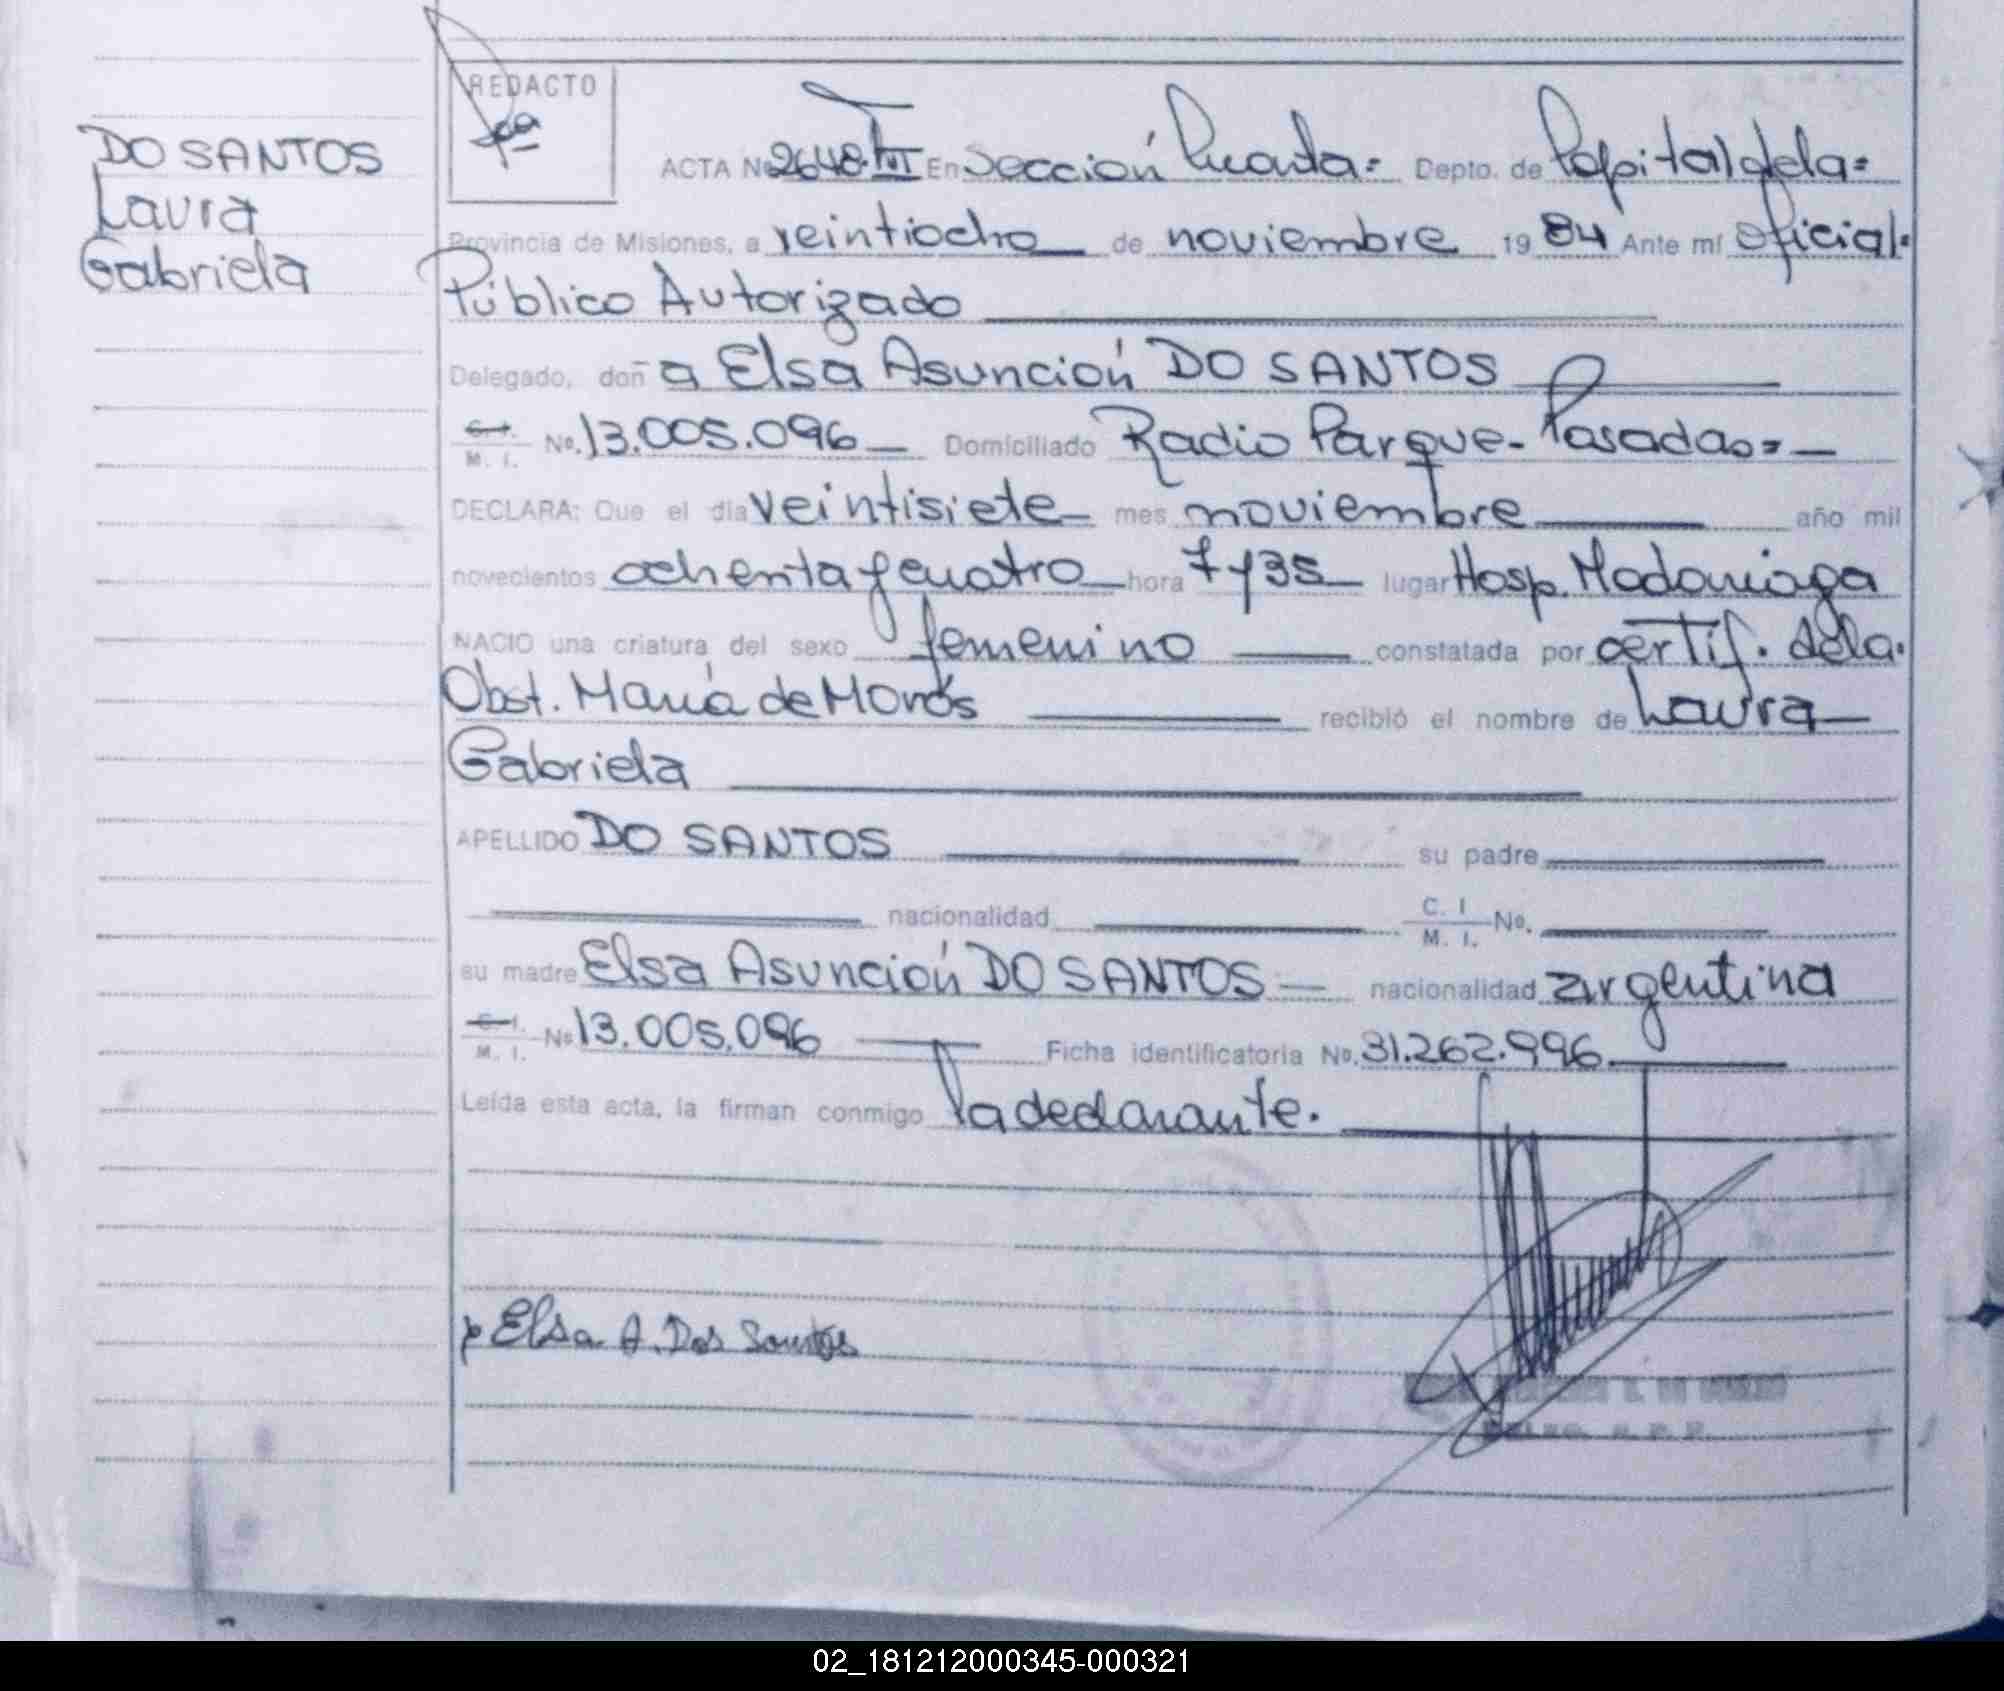 DO SANTOS
Laura
Gabriela
REDACTO
ACTA No 2648. T VI En Sección Cuarta= Depto. de Capital de la=
Provincia de Misiones, a veintiocho de noviembre 19 84 Ante mí Oficial=
Público Autorizado
Delegado, doñ a Elsa Asunción DO SANTOS
C. I. M. I. No. 13.005.096 Domiciliado Radio Parque- Posadas=
DECLARA: Que el día veintisiete mes noviembre año mil
novecientos ochenta y cuatro hora 7 y 35 lugar Hosp. Madariaga
NACIO una criatura del sexo femenino constatada por certif. de la
Obst. María de recibió el nombre de Laura
Gabriela
APELLIDO DO SANTOS su padre
nacionalidad C. I. M. I. No.
su madre Elsa Asunción DO SANTOS nacionalidad argentina
C. I. M. I. No 13.005.096 Ficha identificatoria No. 31.262.996
Leída esta acta, la firman conmigo la declarante.
Elsa A. Dos Santos
02_181212000345-000321